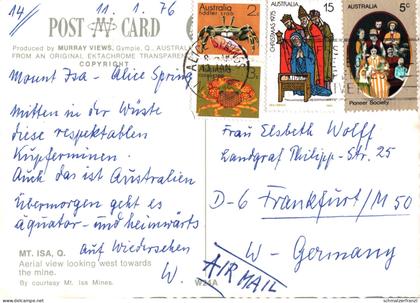 14/ 11. 1. 76
POST CARD
Produced by MURRAY VIEWS, Gympie, Q., AUSTRALIA
FROM AN ORIGINAL EKTACHROME TRANSPARENCY
COPYRIGHT
Mount Isa - Alice Spring
Mitten in der Wüste
diese respektablen
Kupferminen.
Auch das ist Australien
Übermorgen geht es
äquator- und heimwärts
Auf Wiedersehen
W.
MT. ISA, Q.
Aerial view looking west towards
the mine.
By courtesy Mt. Isa Mines.
W24A
AUSTRALIA 2c
fiddler crab
3c
AUSTRALIA
15
CHRISTMAS 1975
AUSTRALIA
5c
Pioneer Society
Frau Elsbeth Wolff
Landgraf Philipp-Str. 25
D-6 Frankfurt/M 50
W-Germany
AIR MAIL
www.delcampe.net
schwarzerfranz